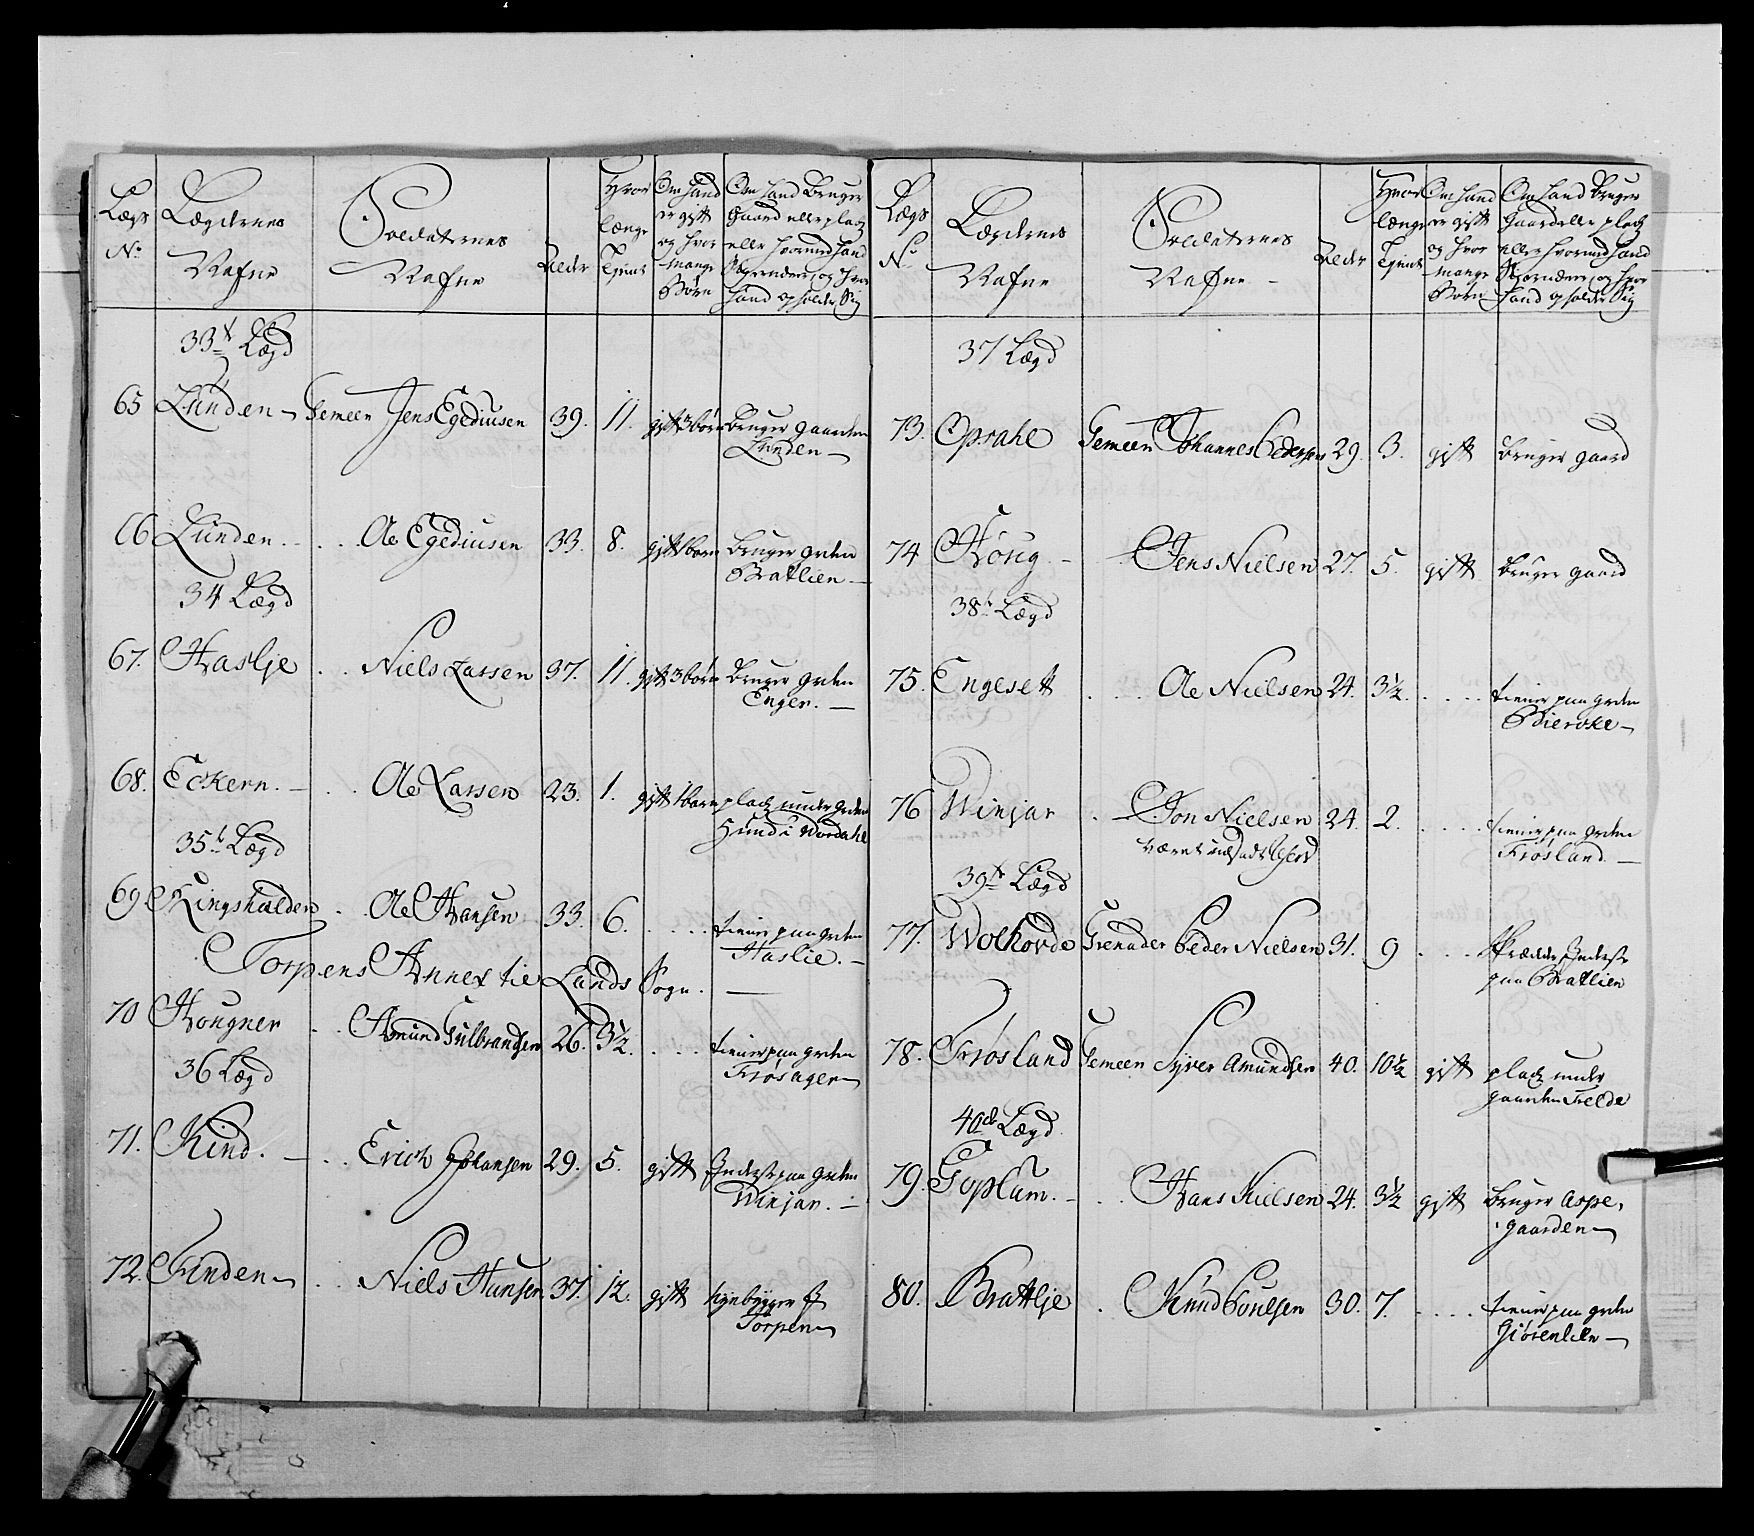 Lægs No
Lægdernes Nafne
Soldaternes Nafne
Alder
Hvor længe tjent
Om hand er gift og hvor mange Børn
Om hand Bruger Gaard eller plads eller hvormed hand sig ernærer, og hvor hand opholder Sig
33te Lægd
65 Lunden Gemeen Jens Egediusen 39. 11. gift 3 børn Bruger gaarden
Lunden
66 Lunden Ole Egediusen 33. 8. gift 1 barn Bruger grden
Bratlien
34 Lægd
67. Haslje Niels Larsen 37. 11. gift 3 børn Bruger grden
Enger.
68. Eckern. Ole Larsen 23. 1. gift 1 barn plads under grden
Hund i Wardahl
35te Lægd
69 Kingshalden Ole Hansen 33. 6. tiener paa grden
Haslie.
Torpens Annex til Lands Sogn.
70 Hougner Amund Gulbrandsen 26. 3½. tiener paa grden
Frøsager
36 Lægd
71. Kind. Erich Johansen 29. 5. gift Inderst paa grden
Winjar.
72. Finden Niels Hansen 37. 12. gift
Torpen
Lægs No
Lægdernes Nafne
Soldaternes Nafne
Alder
Hvor længe tjent
Om hand er gift og hvor mange Børn
Om hand Bruger Gaard eller plads eller hvormed hand sig ernærer, og hvor hand opholder Sig
37 Lægd
73. Opsahl Gemeen Johannes Pedersen 29. 3. gift Bruger gaard
74 Houg Jens Nielsen 27. 5. gift Bruger gaard
38te Lægd
75. Engesett Ole Nielsen 24. 3½. tiener paa grden
76 Winjar Jon Nielsen 24. 2. tiener paa grden
Frøsland.
39te Lægd
77. Wolhovde Grenader Peder Nielsen 31. 9 Skrædder, Inderst
paa Bratlien
78. Frøsland Gemeen Syver Amundsen 40. 10½ gift plads under
gaarden
40de Lægd
79. Goplum. Hans Nielsen 24. 3½ gift Bruger Aspe,
gaarden
80. Brattlje Knud Poulsen 30. 7. tiener paa grden